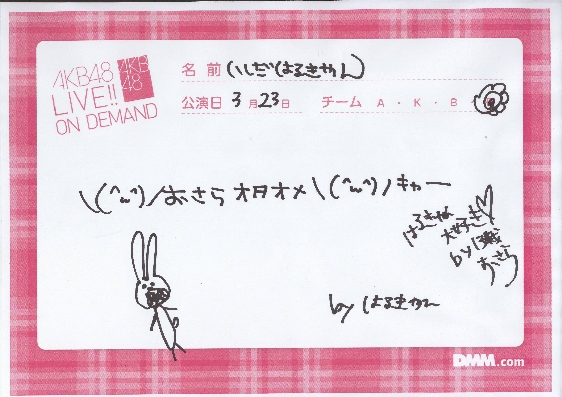 AKB48
LIVE!!
ON DEMAND
AKB
48
名前 いしだはるきゃん
公演日 3月23日 チーム A・K・B・
\(^ω^)/おさら オタオメ\(^ω^)/キャー
はるきゃん
大好き♡
by 13歳
おさら
by はるきゃん
DMM.com